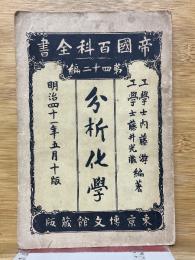 帝國百科全書
第四十二編
工學士内藤游
工學士藤井光藏
編著
分析化學
明治四十一年五月十版
東京博文館蔵版